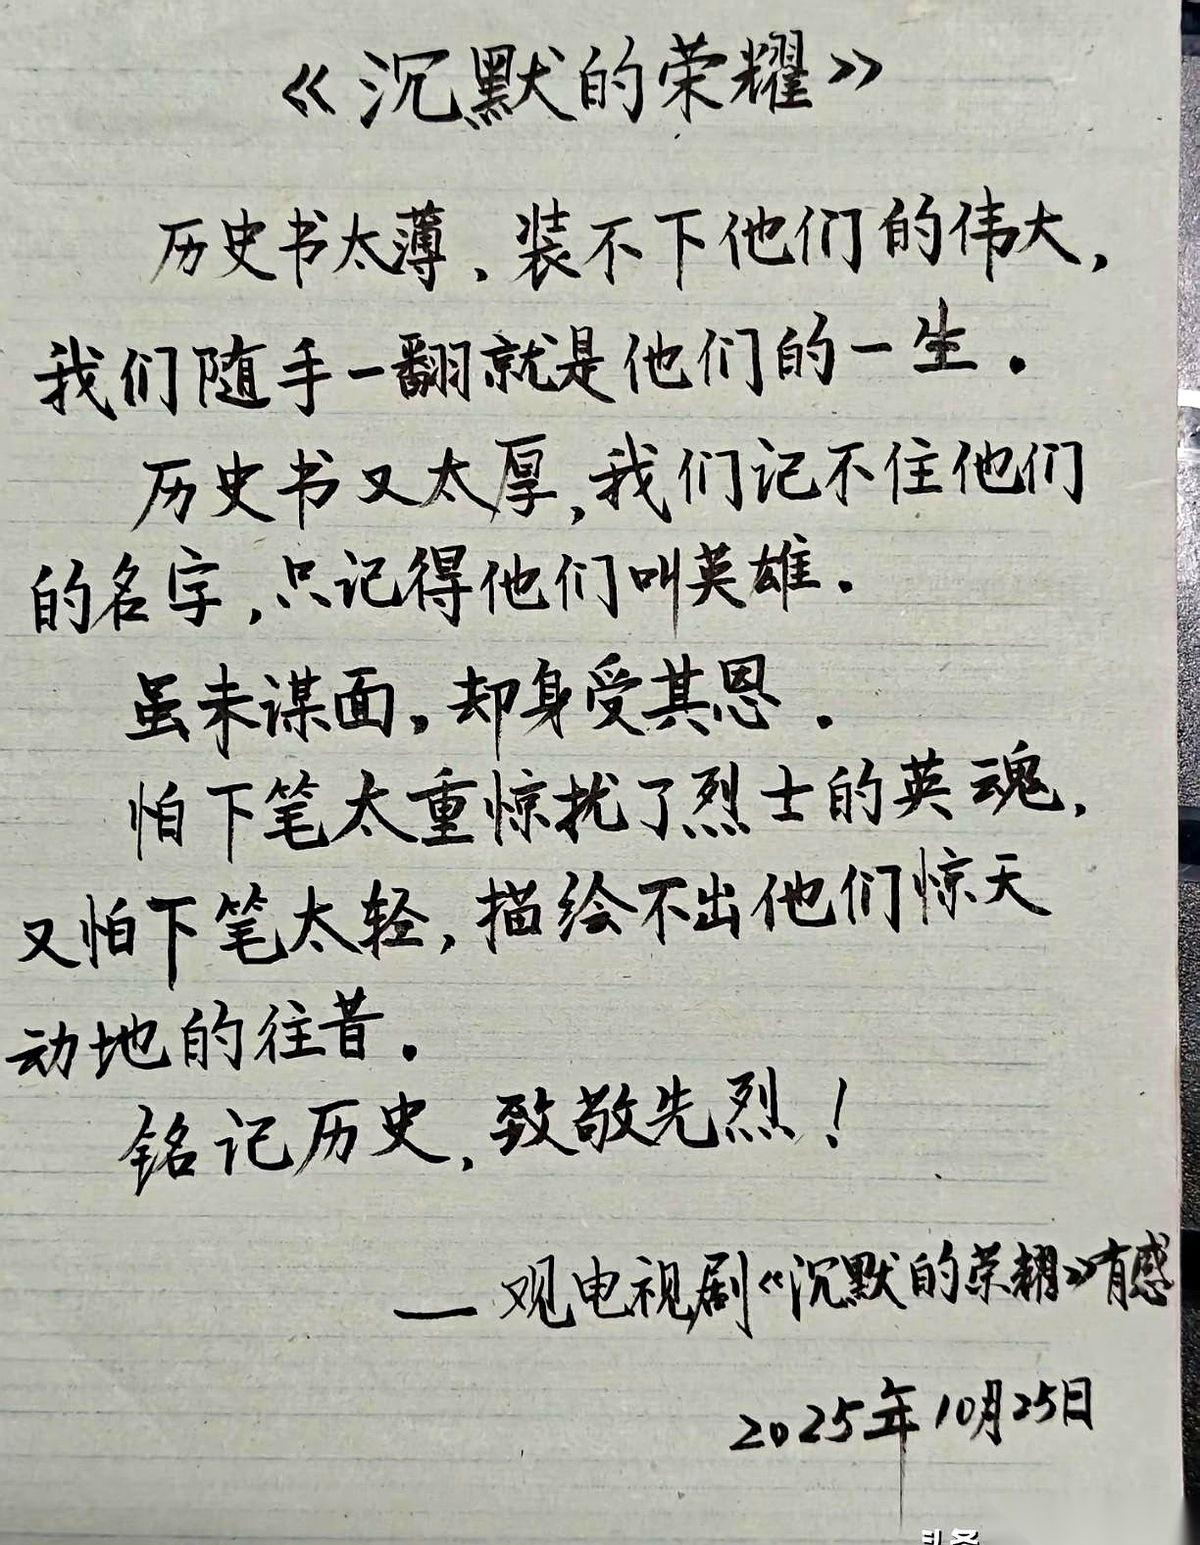 《沉默的荣耀》
历史书太薄，装不下他们的伟大，
我们随手一翻就是他们的一生．
历史书又太厚，我们记不住他们
的名字，只记得他们叫英雄．
虽未谋面，却身受其恩．
怕下笔太重惊扰了烈士的英魂，
又怕下笔太轻，描绘不出他们惊天
动地的往昔．
铭记历史，致敬先烈！
—观电视剧《沉默的荣耀》有感
2025年10月25日